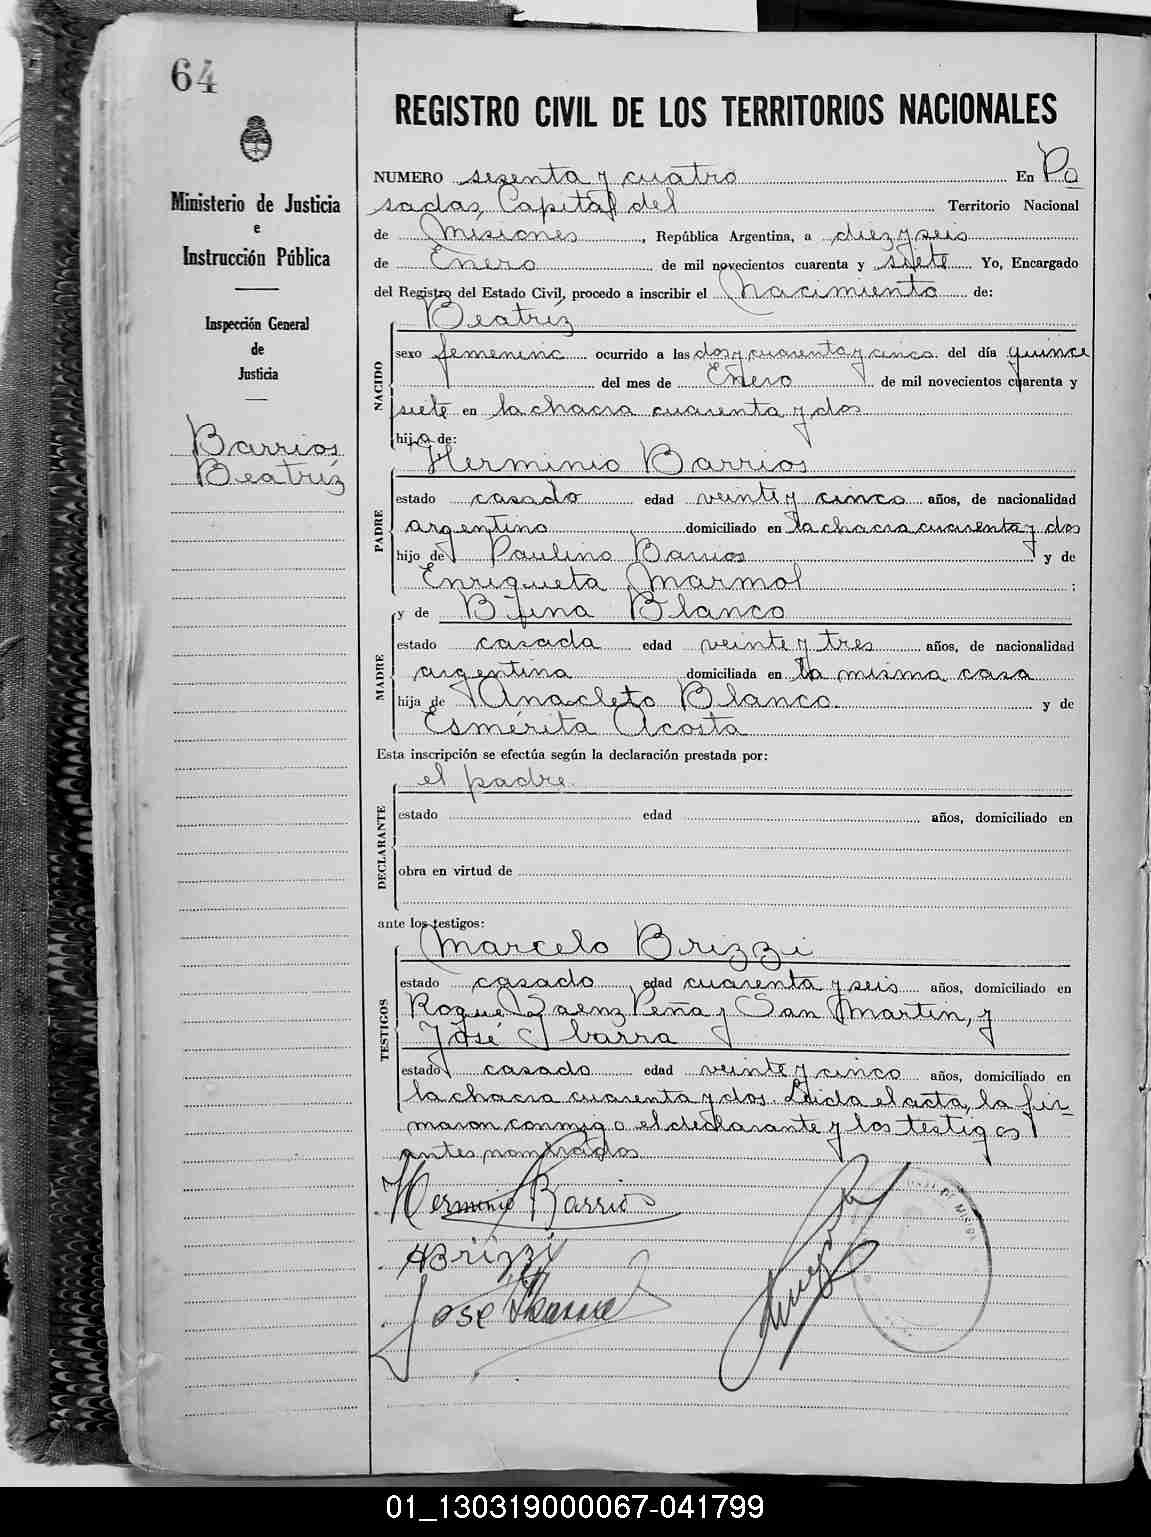 64
Ministerio de Justicia
e
Instrucción Pública
Inspección General
de
Justicia
Barrios
Beatriz
REGISTRO CIVIL DE LOS TERRITORIOS NACIONALES
NUMERO sesenta y cuatro En Po
sadas, Capital del Territorio Nacional
de Misiones, República Argentina, a diez y seis
de Enero de mil novecientos cuarenta y siete Yo, Encargado
del Registro del Estado Civil, procedo a inscribir el Nacimiento de:
Beatriz
NACIDO
sexo femenino ocurrido a las dos y cuarenta y cinco del día quince
del mes de Enero de mil novecientos cuarenta y
siete en la chacra cuarenta y dos
hija de:
Herminio Barrios
PADRE
estado casado edad veinte y cinco años, de nacionalidad
argentino domiciliado en la chacra cuarenta y dos
hijo de Paulino Barrios y de
Enriqueta Marmol ;
y de Blanco
MADRE
estado casada edad veinte y tres años, de nacionalidad
argentina domiciliada en la misma casa
hija de Anacleto Blanco y de
Esmérita Acosta
Esta inscripción se efectúa según la declaración prestada por:
el padre
DECLARANTE
estado edad años, domiciliado en
obra en virtud de
ante los testigos:
Marcelo Brizzi
TESTIGOS
estado casado edad cuarenta y seis años, domiciliado en
Roque Saenz Peña y San Martin, y
José Ibarra
estado casado edad veinte y cinco años, domiciliado en
la chacra cuarenta y dos. Leida el acta, la fir-
maron conmigo el declarante y los testigos
antes nombrados
Herminio Barrios
Brizzi
Jose Ibarra
01_130319000067-041799